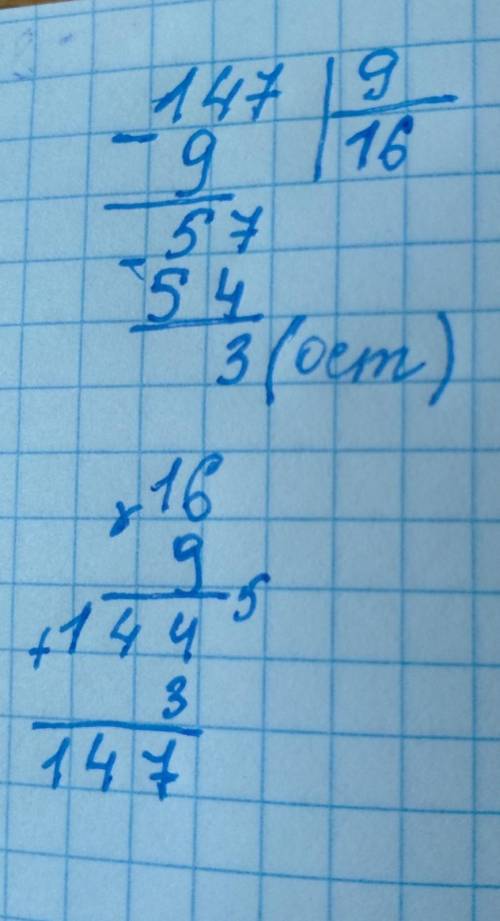 - 147 | 9
9 16
- 57
54
3 (ост)
x 16
9
5
+ 144
3
147